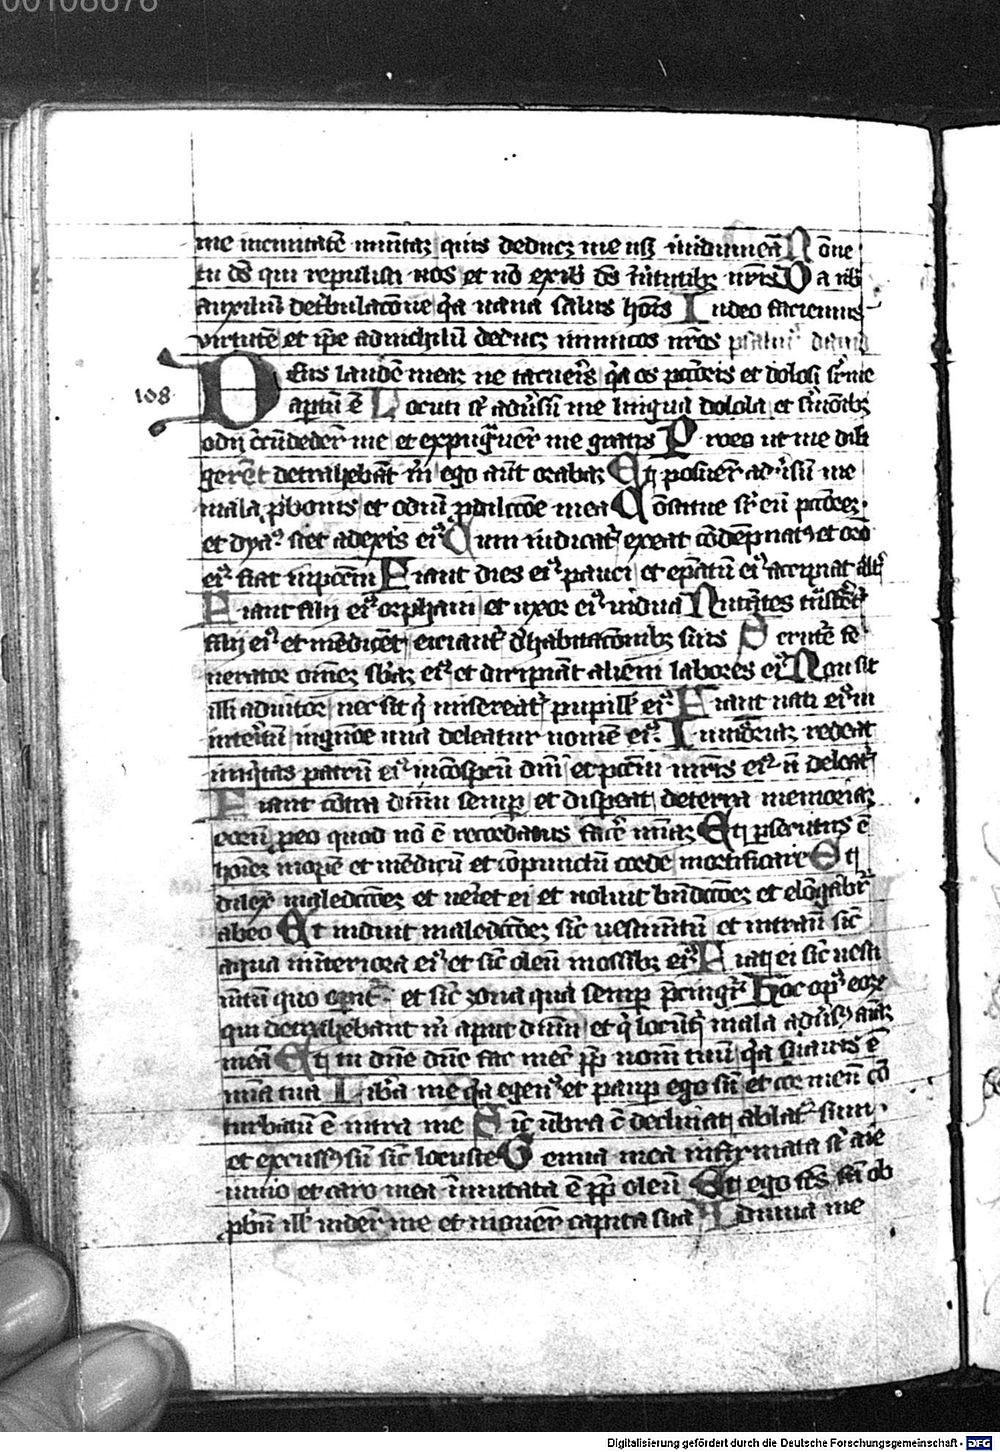 00108678
me in ciuitatē munitaꝫ quis deducꝫ me usqꝫ in idumeā Nōne
tu dꝰ qui repulisti nos et nō exibꝭ dꝰ ī uirtutibꝫ nr̄is Da nob̄
auxiliū de tbulacōne qꝛ uana salus hoīs In deo faciemus
virtutē et ip̄e ad nichilū deducꝫ inimicos nr̄os psalmꝰ dauid
108 Deus laudē meaꝫ ne tacueris qꝛ os pctōris et dolosi sr̄ me
aptū ē Locuti sr̄ adūsū me lingua dolosa et sr̄monibꝫ
odij cr̄cūdeder̄ me et expugᷓuer̄ me gratis Pro eo ut me dili
gerēt detrahebāt m̄ ego aūt orabaꝫ Et posuer̄ adūsū me
mala pro bonis et odiū pro dilcōe mea Cōstitue sr̄ eū pctōreꝫ
et dyaꝰ stet a dextrꝭ eiꝰ Cum iudicatꝰ exeat cōdēpnatꝰ et orō
eiꝰ fiat in pctm̄ Fiant dies eiꝰ pauci et ep̄atū eiꝰ accipiat altꝰ
Fiant filij eiꝰ orphani et uxor eiꝰ uidua Nutātes tr̄sferāt̄
filij eiꝰ et mēdicēt eiciant̄ de habitacōnibꝫ suis Scrutet̄ fe
nerator omēꝫ sb̄aꝫ eiꝰ et diripiāt alieni labores eiꝰ Non sit
illi adiutor nec sit qui misereatꝰ pupillꝭ eiꝰ Fiant nati eiꝰ in
interitū in gnōe una deleatur nomē eiꝰ In mēoriaꝫ redeat
iniqtas patrū eiꝰ in cōspcū dn̄i et pctm̄ mr̄is eiꝰ nō deleatꝰ
Fiant cōtra dn̄m semp et dispeat de terra memoriaꝫ
eorū pro eo quod nō ē recordatus facē miāꝫ Et psecutus ē
hoīeꝫ inopē et mēdicū et cōpunctū corde mortificare Et
dilexꝭ maledictōeꝫ et ueīet ei et noluit bn̄dictōeꝫ et elōgabit̄
ab eo Et induit maledictōeꝫ sic̄ uestimtū et intrauꝭ sic̄
aqua in interiora eiꝰ et sic̄ oleū in ossibꝫ eiꝰ Fiat ei sic̄ uesti
mtū quo opit̄ et sic̄ zona qua semp p̄cingit̄ Hoc opꝰ eoꝝ
qui detrahebant m̄ aput dn̄m et q̄ locūtꝭ mala adūsꝰ aīaꝫ
meā Et tu dn̄e dn̄e fac mecū pp̄ nom tuū qꝛ suauis ē
mīa tua Libᷓa me qꝛ egenꝰ et paup ego sū et cor meū cō
turbatū ē intra me Sic̄ ūbra cū declinat ablatꝰ sum
et excussꝰ sū sic̄ locuste Genua mea infirmata sr̄ a ie
iunio et caro mea īmutata ē pp̄ oleū Et ego fcs̄ sū ob
pbīū illꝭ uider̄ me et mouer̄ capita sua Adiuua me
Digitalisierung gefördert durch die Deutsche Forschungsgemeinschaft - DFG